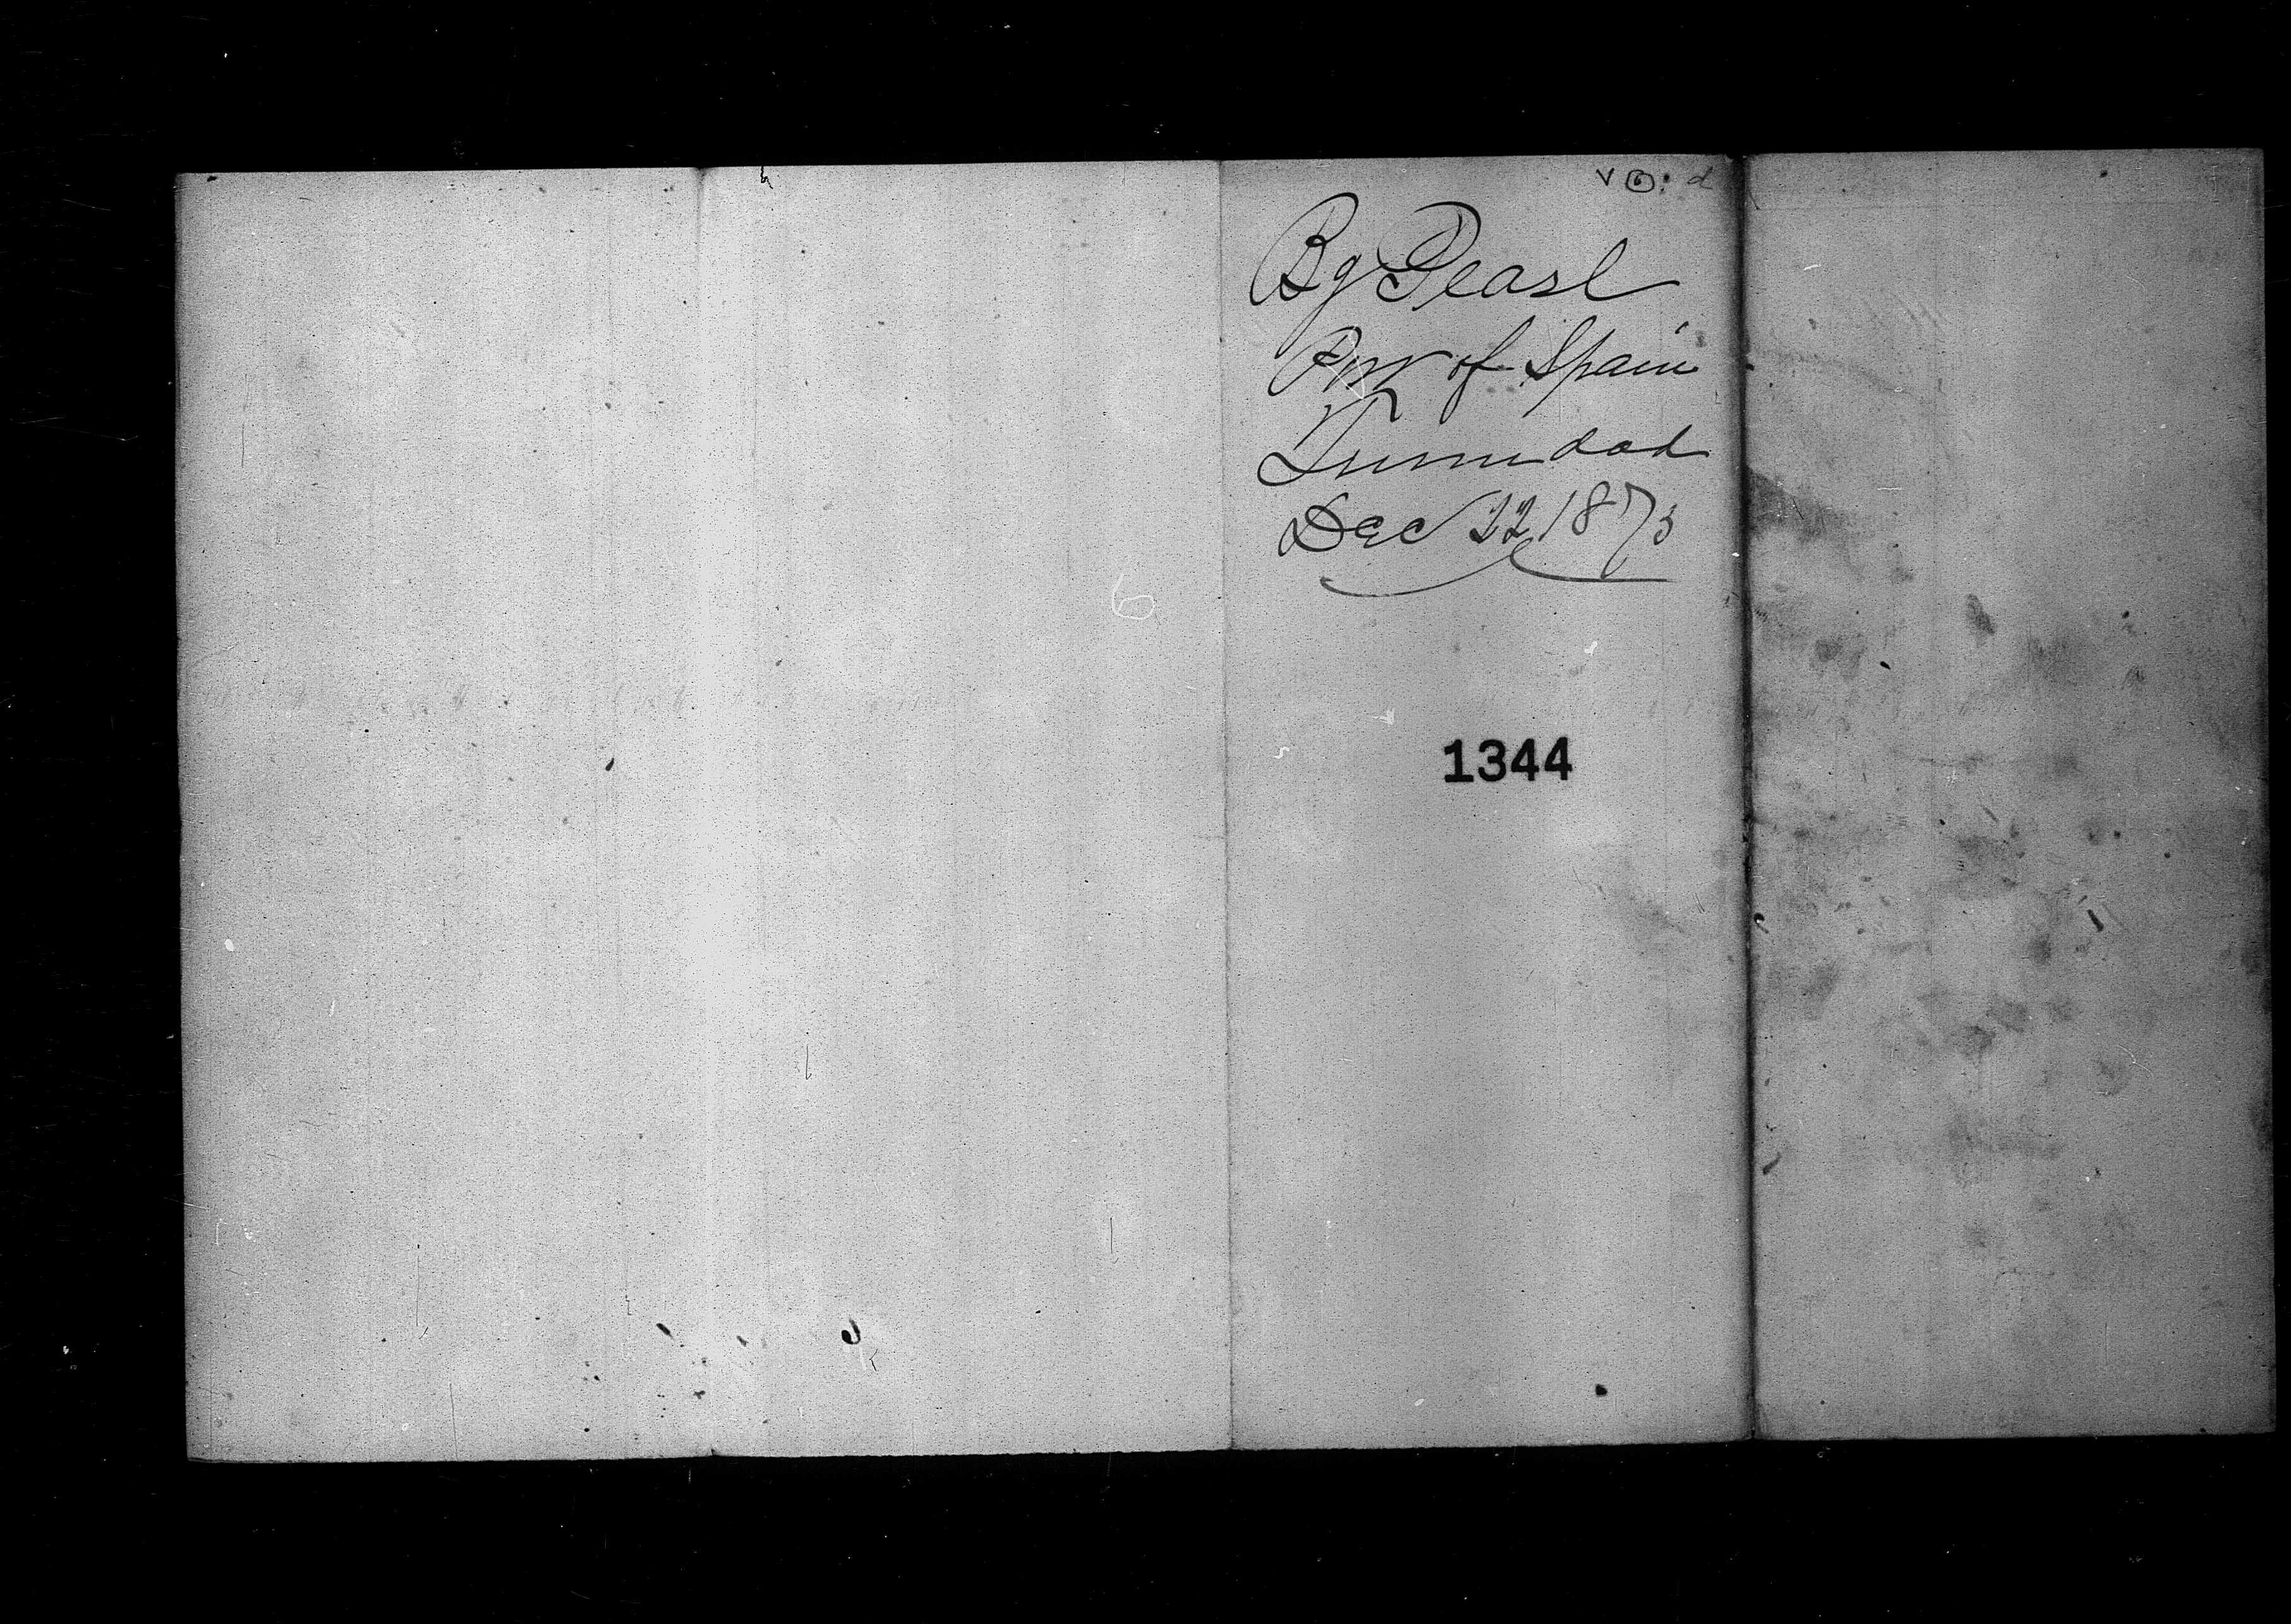 Bg Pearl
Port of Spain
Trinidad
Dec 22 1873
1344